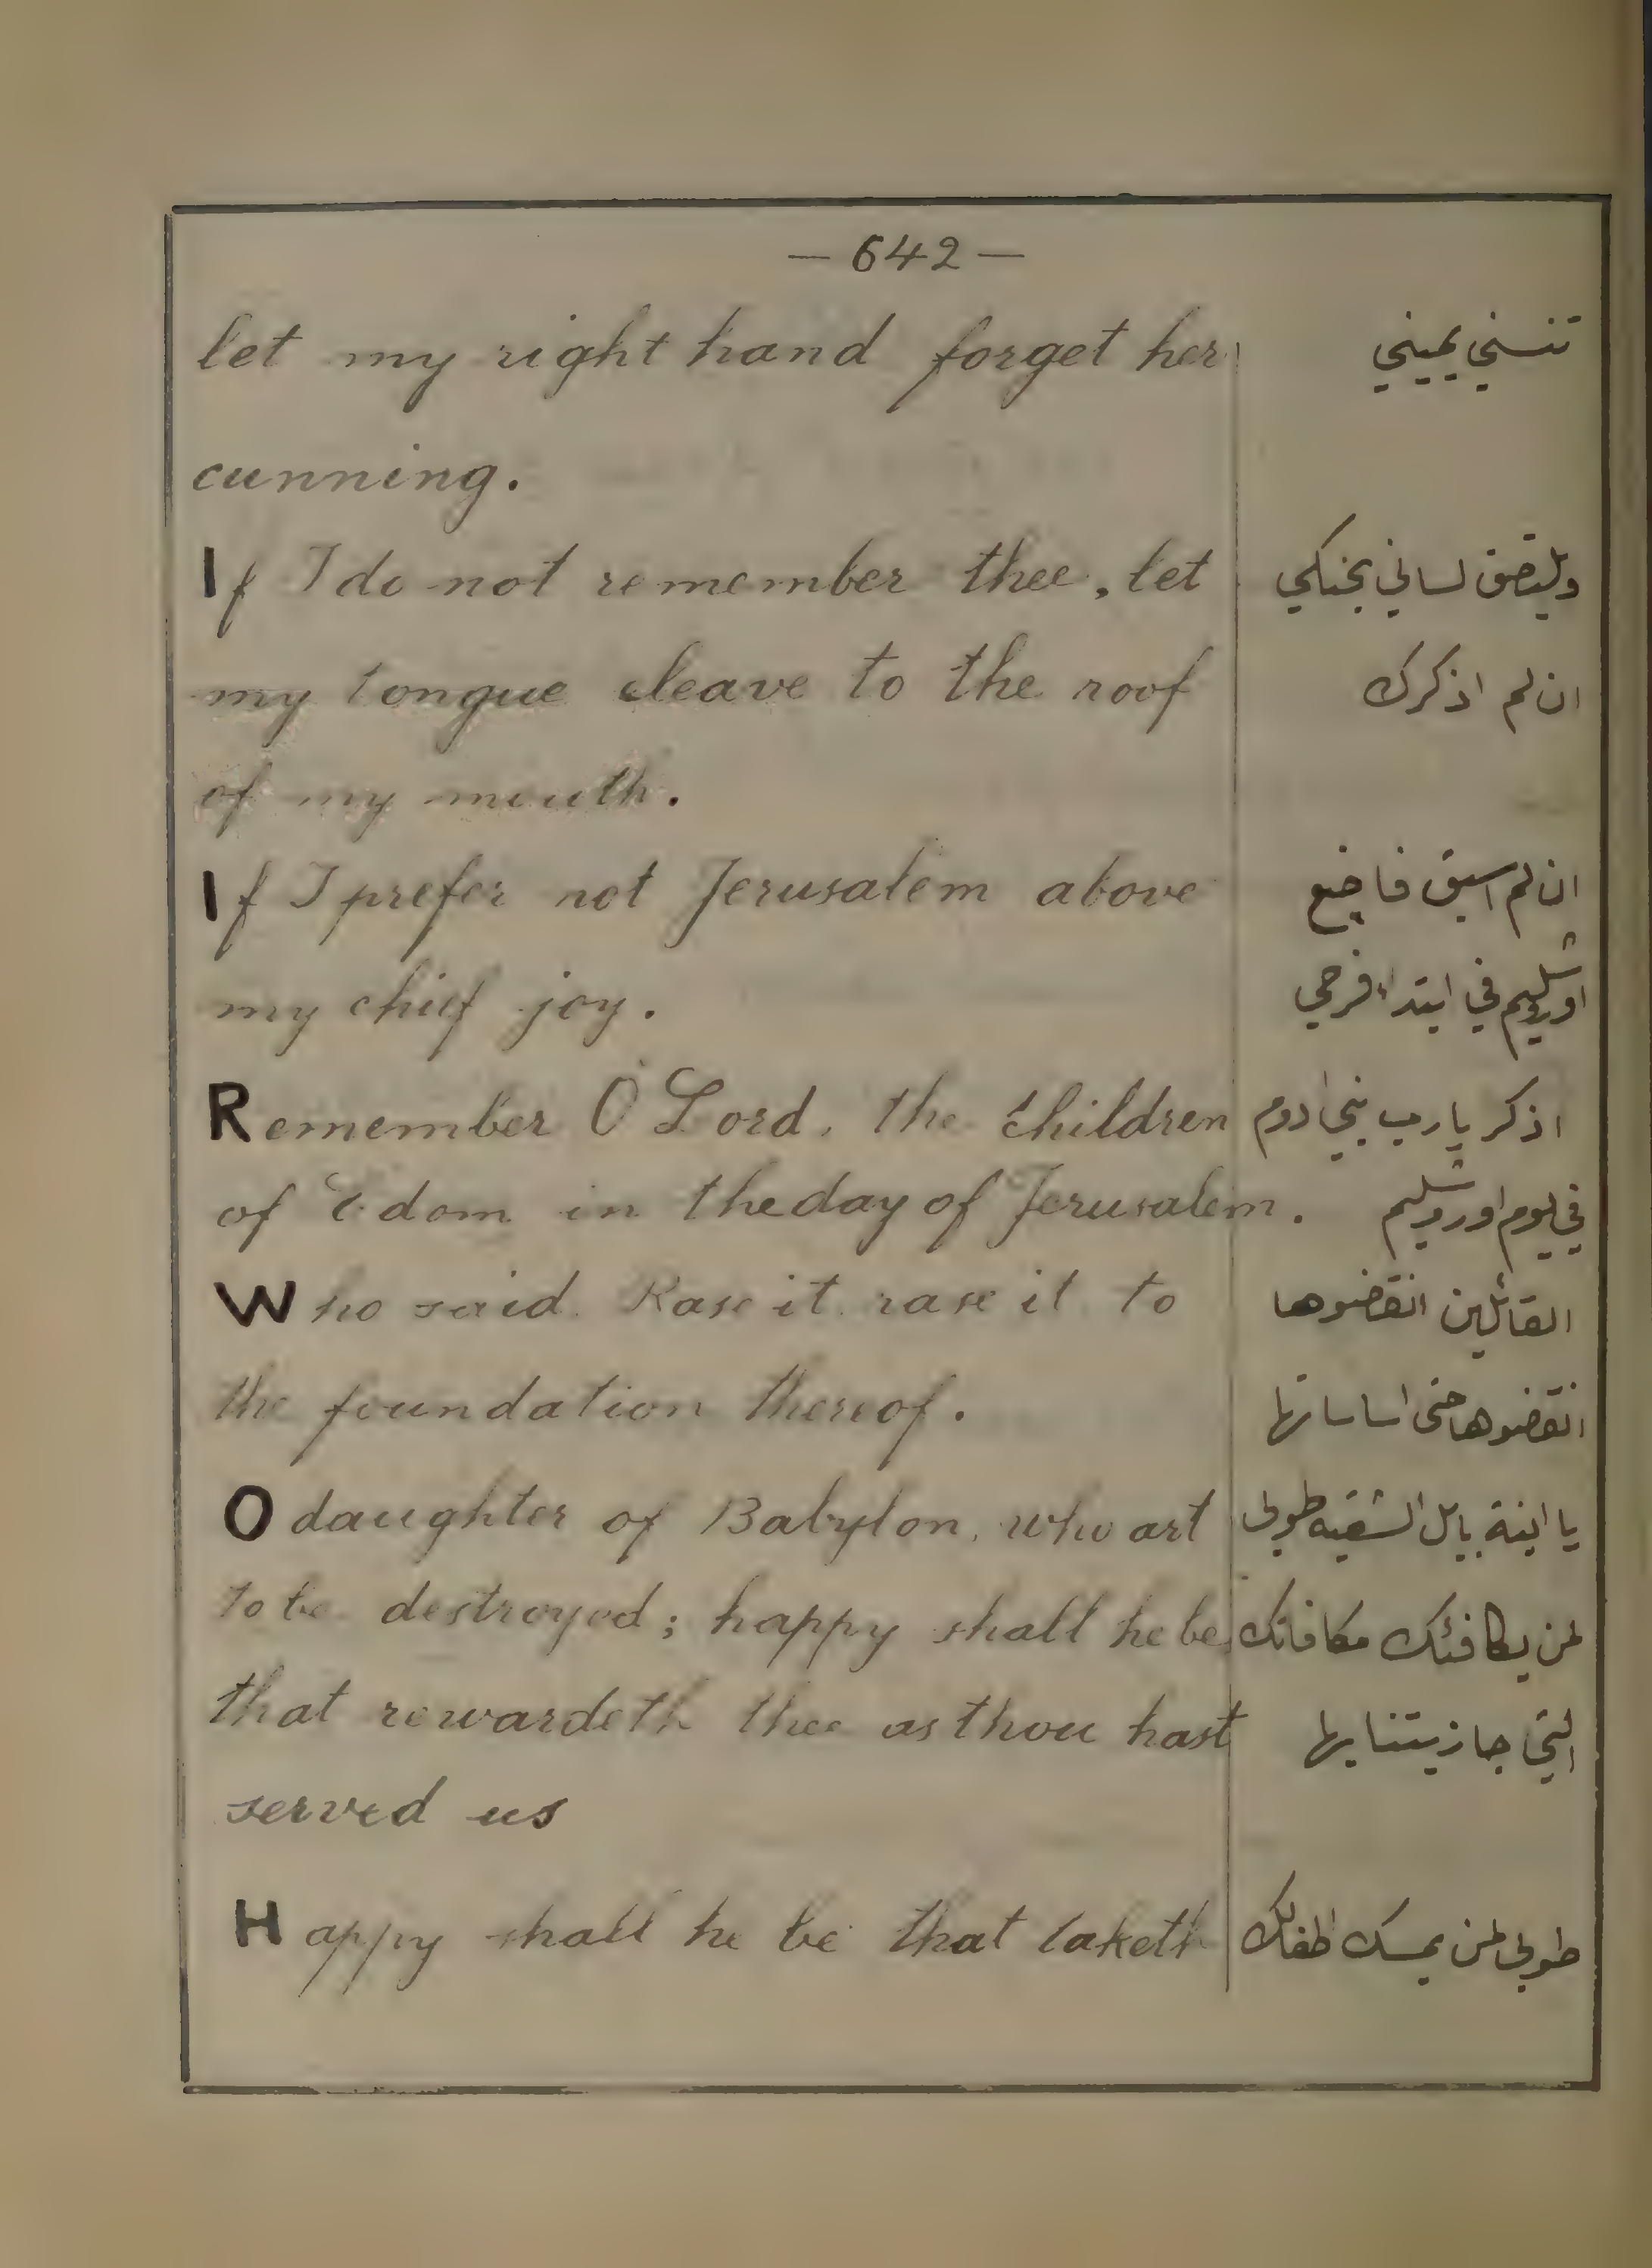 — 642 —
let my right hand forget her
تنسني يميني
cunning.
If I do not remember thee, let
وليلتصق لساني بحنكي
my tongue cleave to the roof
ان لم اذكرك
of my mouth.
If I prefer not Jerusalem above
ان لم اسبق فاضع
my chief joy.
اورشليم في ابتداء فرحي
Remember O Lord, the children
اذكر يارب بني ادوم
of Edom in the day of Jerusalem.
في يوم اورشليم
Who said. Rase it. rase it. to
القائلين انقضوها
the foundation thereof.
انقضوها حتى اساساتها
O daughter of Babylon, who art
يا ابنة بابل الشقيه طوبى
to be destroyed; happy shall he be
لمن يكافئك مكافاتك
that rewardeth thee as thou hast
التي جازيتنا بها
served us
Happy shall he be that taketh
طوبى لمن يمسك اطفالك